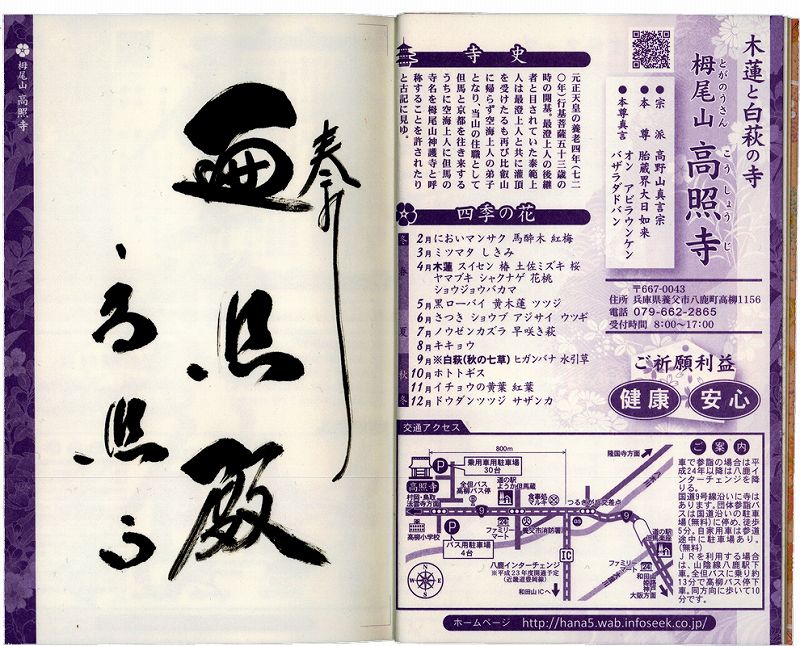 木蓮と白萩の寺
とがのうさん こうしょうじ
栂尾山 高照寺
●宗 派 高野山真言宗
●本 尊 胎蔵界大日如来
●本尊真言 オン アビラウンケン
バザラダドバン
〒667-0043
住所 兵庫県養父市八鹿町高柳1156
電話 079-662-2865
受付時間 8:00～17:00
ご祈願利益
健康 安心
寺史
元正天皇の養老四年（七二
〇年）行基菩薩五十三歳の
時の開基。最澄上人の後継
者と目されていた泰範上
人は最澄上人と共に灌頂
を受けたるも再び比叡山
に帰らず空海上人の弟子
となり、当山の住職として
但馬と京都を往き来する
うちに空海上人に但馬の
寺名を栂尾山神護寺と呼
称することを許されたり
と古記に見ゆ。
四季の花
冬
2月 においマンサク 馬酔木 紅梅
3月 ミツマタ しきみ
春
4月 木蓮 スイセン 椿 土佐ミズキ 桜
ヤマブキ シャクナゲ 花桃
ショウジョウバカマ
5月 黒ローバイ 黄木蓮 ツツジ
6月 さつき ショウブ アジサイ ウツギ
夏
7月 ノウゼンカズラ 早咲き萩
8月 キキョウ
9月 ※白萩（秋の七草） ヒガンバナ 水引草
秋
10月 ホトトギス
11月 イチョウの黄葉 紅葉
冬
12月 ドウダンツツジ サザンカ
交通アクセス
800m
隆国寺方面
P 乗用車用駐車場
30台
高照寺
村岡・鳥取
法雲寺方面
全但バス
高柳バス停
道の駅
ようか但馬蔵
食事処
マルキ
つるぎが丘交差点
9
9
高柳小学校
P
バス用駐車場
4台
ファミリー
マート
養父市消防署
IC
道の駅
但馬楽座
ファミリー
マート
八鹿インターチェンジ
※平成23年度開通予定
（近畿道豊岡線）
和田山ICへ
和田山
姫路
大阪方面
N
ご案内
車で参詣の場合は平
成24年以降は八鹿イ
ンターチェンジを降
りる。
国道9号線沿いに寺は
あります。団体参詣バ
スは国道沿いの駐車
場（無料）に停め、徒歩
5分。自家用車は参道
途中に駐車場あり。
（無料）
JRを利用する場合
は、山陰線八鹿駅下
車。全但バスに乗り約
13分で高柳バス停下
車。同方向に歩いて10
分です。
ホームページ http://hana5.wab.infoseek.co.jp/
奉
遍照殿
高照寺
栂尾山 高照寺